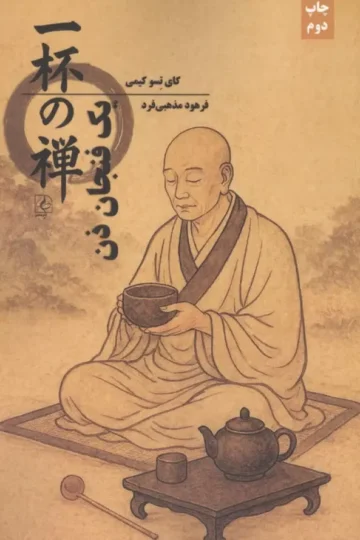 چاپ
دوم
کای تسو کیمی
فرهود مذهبی‌فرد
一杯の禅
یک فنجان ذن